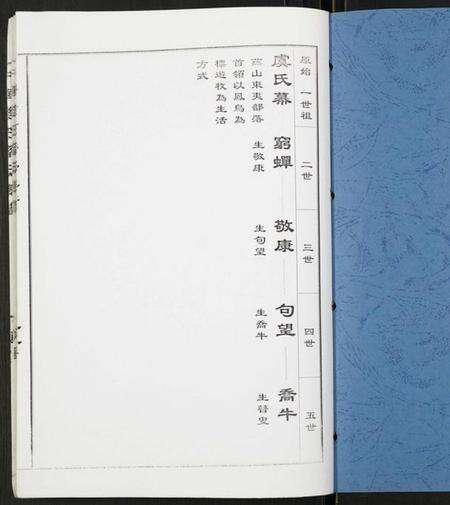 原始 一世祖
二世
三世
四世
五世
虞氏幕
窮蟬
敬康
句望
喬牛
山東夷部落
首領以鳳鳥為
標遊牧為生活
方式
生敬康
生句望
生喬牛
生瞽叟